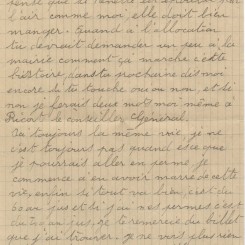 sense que les
l'air comme moi elle doit bien
manger. Quand à l'allocation
tu devrait demander un peu a la
mairie comment ça marche cette
histoire dans ta prochaine dis moi
encore du te touche oui ou non, et si
non je ferait deux mot moi même a
Ricor le conseiller General.
Ou toujours la même vie, je ne
c'est toujours pas quand esce que
je pourrait aller en perme je
commence a en avoir marre de cette
vie, enfin si tout va bien, c'est du
bon jus et si j'ai mes permes c'est
du jus je te remercie du billet
que j'ai trouver je ne vois plus rien